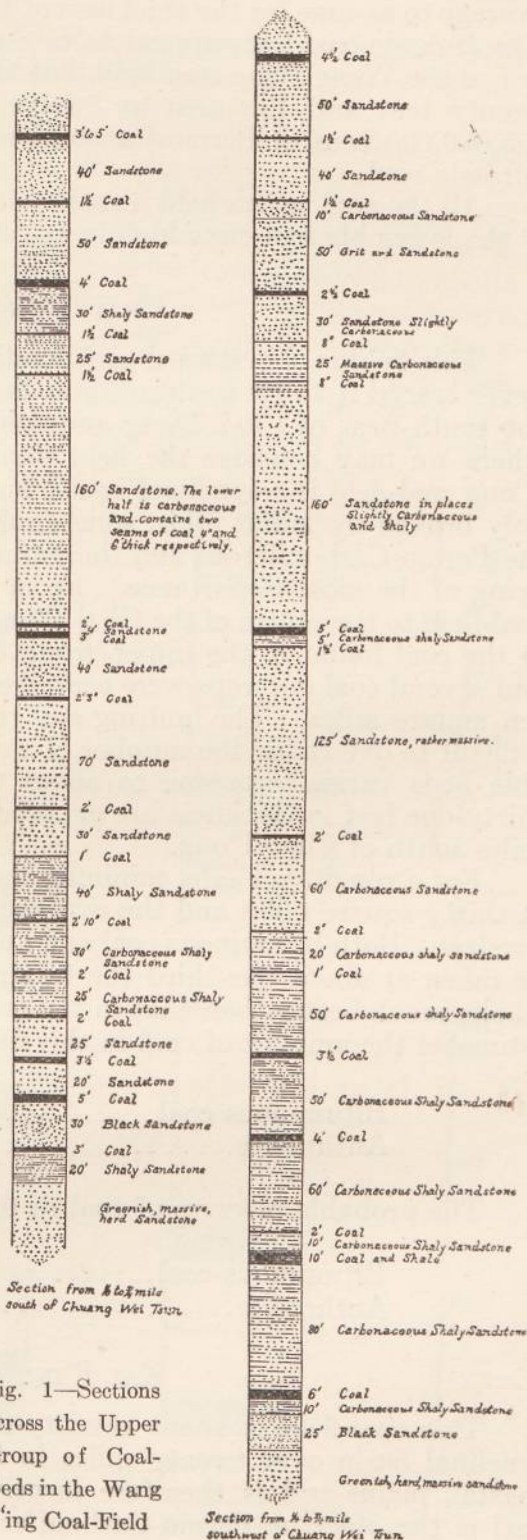 3' to 5' Coal
40' Sandstone
1½' Coal
50' Sandstone
4' Coal
30' Shaly Sandstone
1½' Coal
25' Sandstone
1½' Coal
160' Sandstone. The lower
half is carbonaceous
and contains two
seams of coal 4" and
6" thick respectively.
2' Coal
Sandstone
3' Coal
40' Sandstone
2' 3" Coal
70' Sandstone
2' Coal
30' Sandstone
1' Coal
40' Shaly Sandstone
2' 10" Coal
30' Carbonaceous Shaly
Sandstone
2' Coal
25' Carbonaceous Shaly
Sandstone
2' Coal
25' Sandstone
3½' Coal
20' Sandstone
5' Coal
30' Black Sandstone
3' Coal
20' Shaly Sandstone
Greenish, massive,
hard Sandstone
Section from to mile
south of Chuang Wei Tsun
ig. 1—Sections
cross the Upper
roup of Coal-
eds in the Wang
'ing Coal-Field
4½' Coal
50' Sandstone
1½' Coal
40' Sandstone
1½' Coal
10' Carbonaceous Sandstone
50' Grit and Sandstone
2½' Coal
30' Sandstone Slightly
Carbonaceous
8" Coal
25' Massive Carbonaceous
Sandstone
8" Coal
160' Sandstone in places
Slightly Carbonaceous
and Shaly
5' Coal
5' Carbonaceous shaly Sandstone
1½' Coal
125' Sandstone, rather massive.
2' Coal
60' Carbonaceous Sandstone
8" Coal
20' Carbonaceous shaly sandstone
1' Coal
50' Carbonaceous shaly Sandstone
3½' Coal
50' Carbonaceous Shaly Sandstone
4' Coal
60' Carbonaceous Shaly Sandstone
2' Coal
10' Carbonaceous Shaly Sandstone
10' Coal and Shale
80' Carbonaceous Shaly Sandstone
6' Coal
10' Carbonaceous Shaly Sandstone
25' Black Sandstone
Greenish, hard, massive sandstone
Section from to mile
southwest of Chuang Wei Tsun